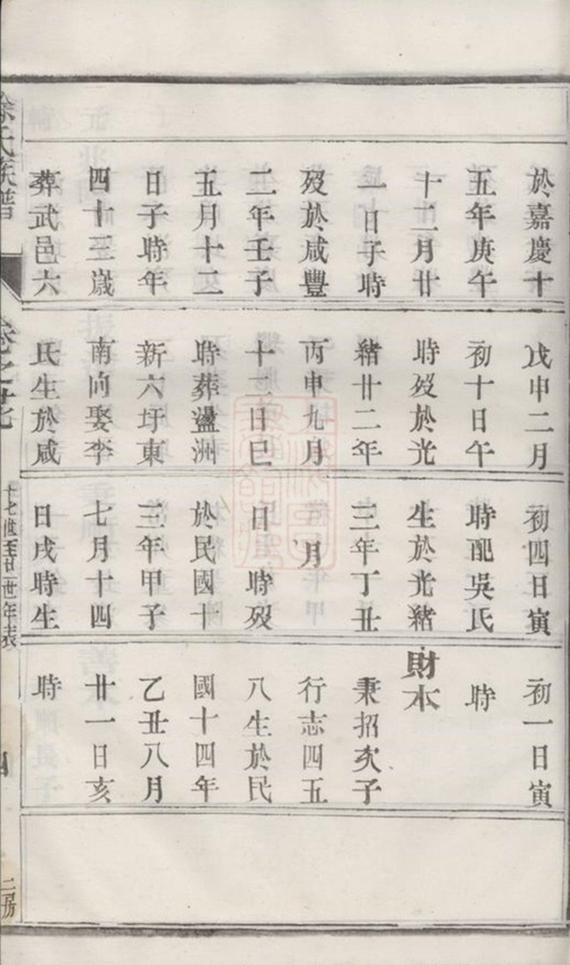 於嘉慶十
五年庚午
十二月廿
一日子時
歿於咸豐
二年壬子
五月十二
日子時年
四十三歲
葬武邑六
戊申二月
初十日午
時歿於光
緒廿二年
丙申九月
十二日巳
時葬盪洲
新六圩東
南向娶李
氏生於咸
初四日寅
時配吳氏
生於光緒
三年丁丑
月
日 時歿
於民國十
三年甲子
七月十四
日戌時生
初一日寅
時
財本
秉招次子
行志四五
八生於民
國十四年
乙丑八月
廿一日亥
時
徐氏族譜
卷之
十七世至廿一世年表
二房